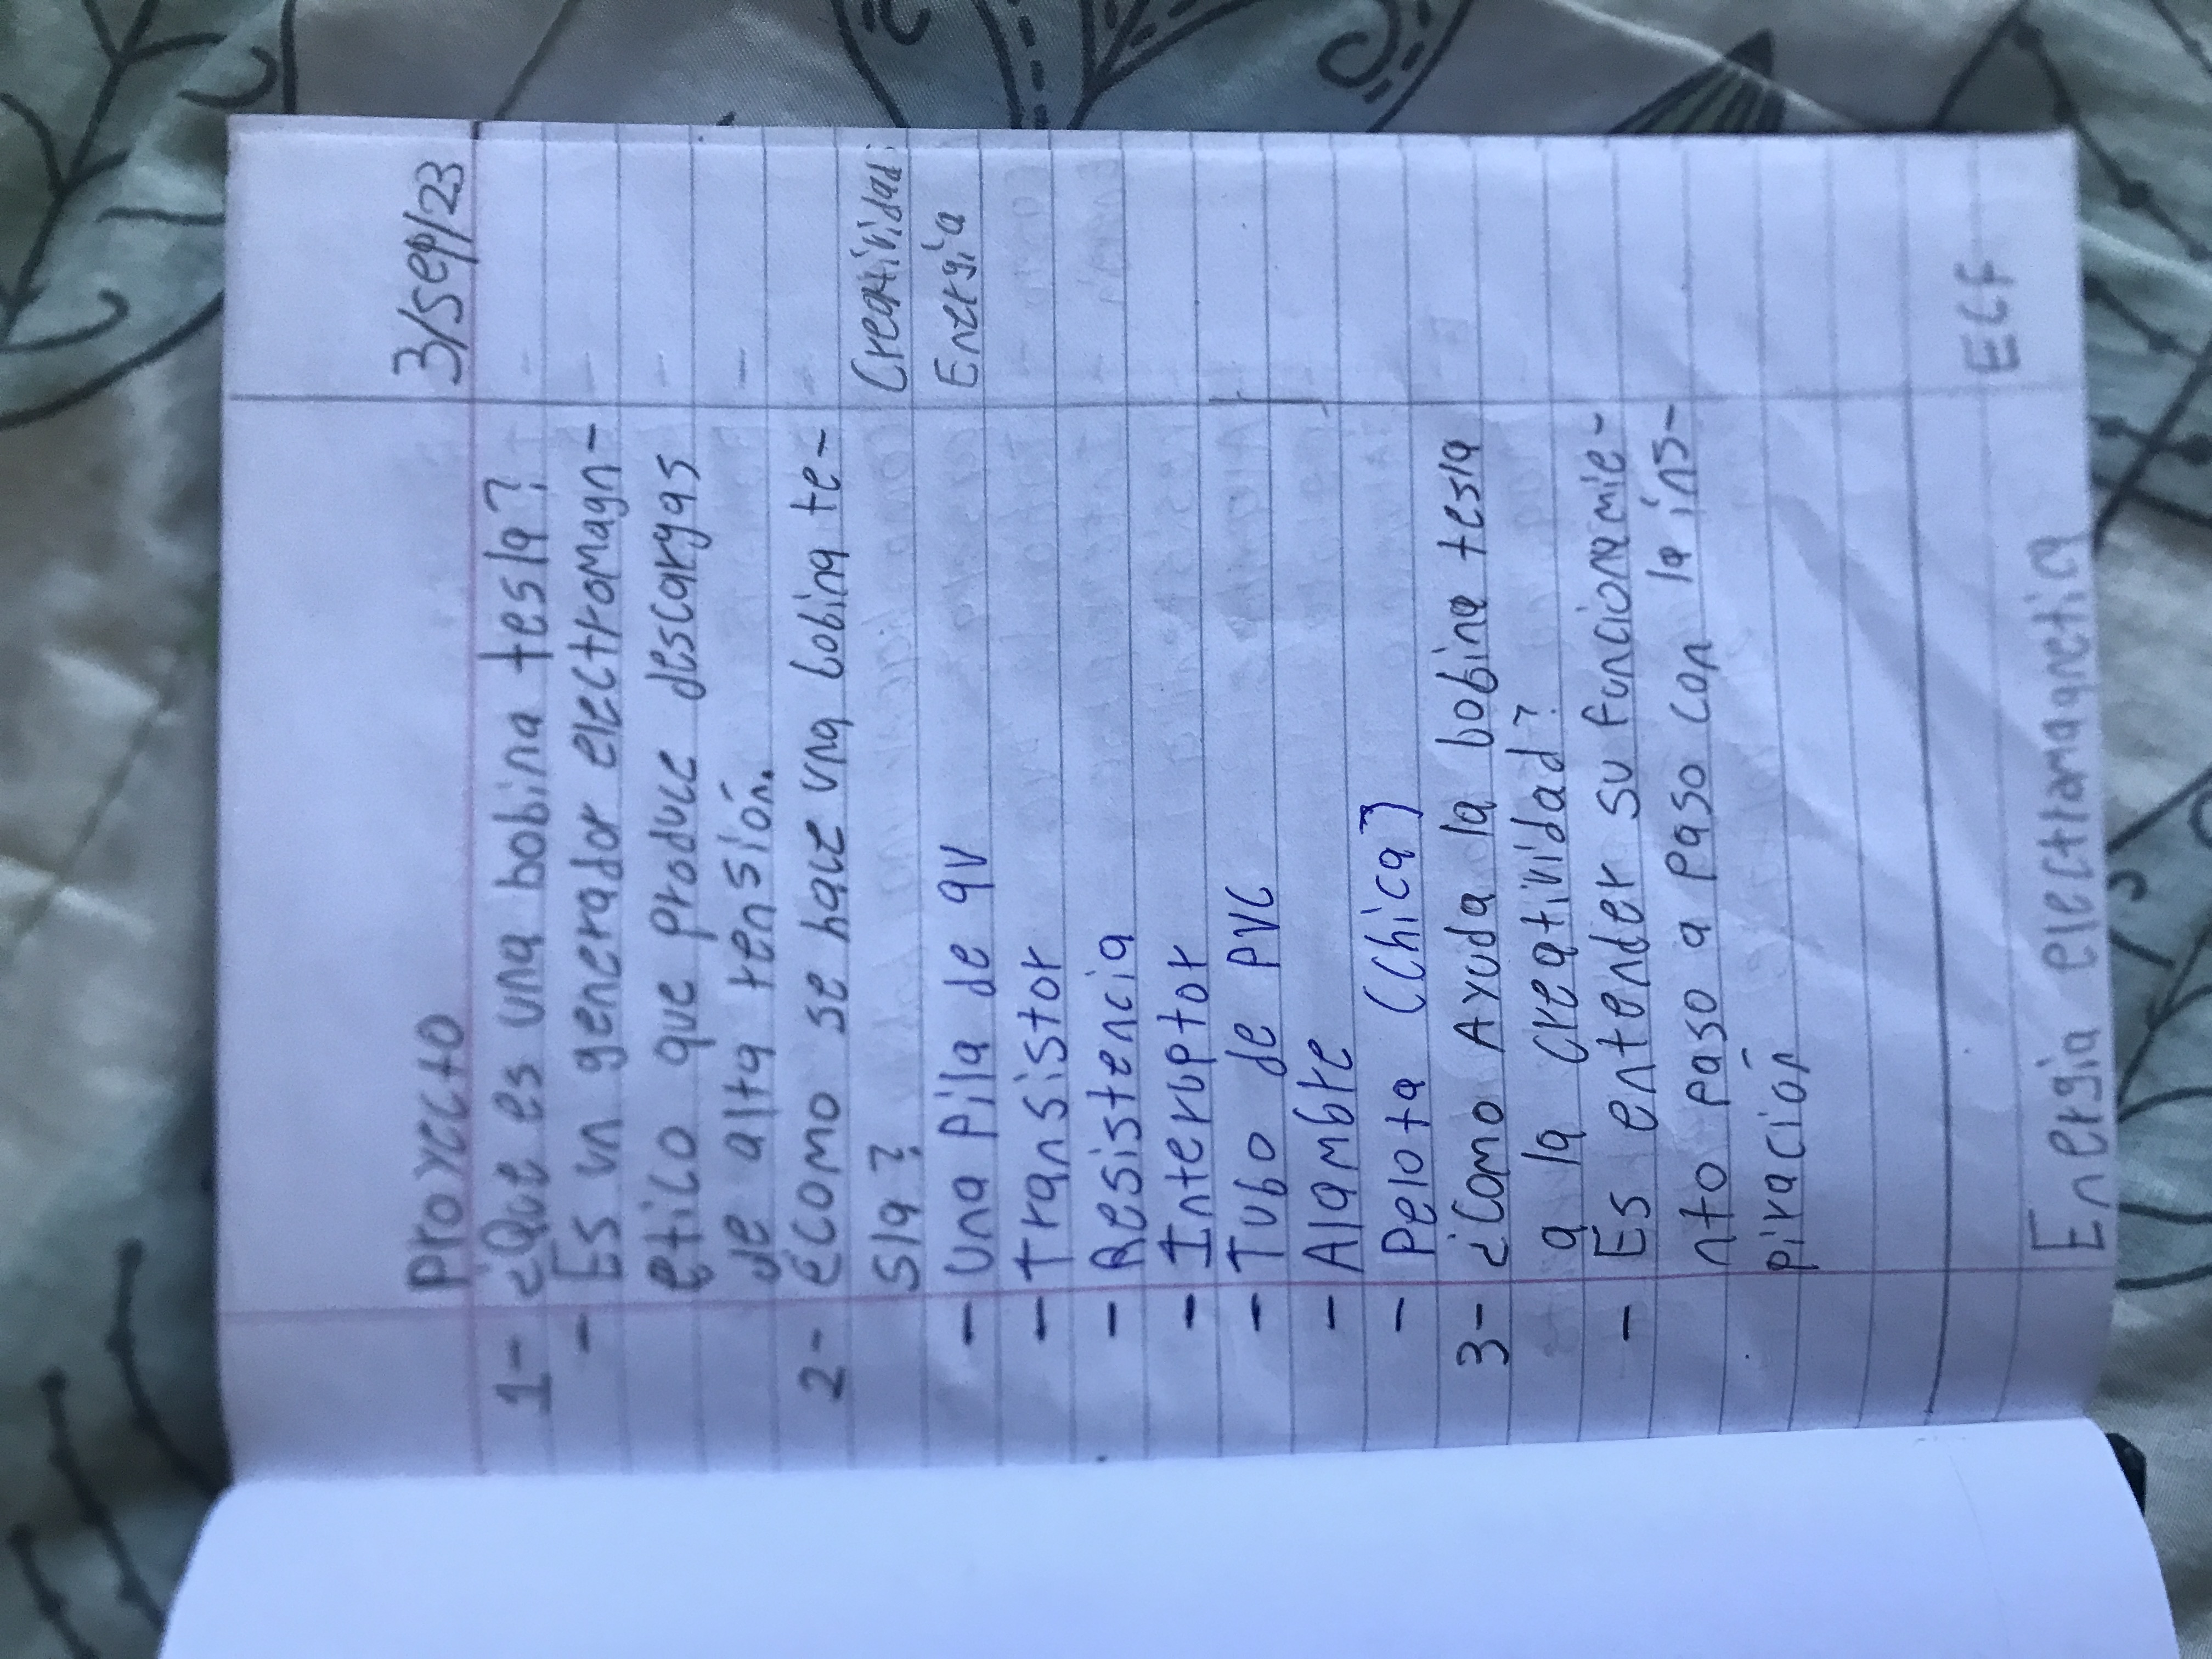 Proyecto 3/sep/23
1- ¿Que es una bobina tesla?
- Es un generador electromagn-
etico que produce descargas
de alta tensión.
2- ¿Como se hace una bobina te-
sla?
Creatividad
Energia
- Una pila de 9V
- Transistor
- Resistencia
- Interuptor
- Tubo de PVC
- Alambre
- Pelota (Chica)
3- ¿Como Ayuda la bobina tesla
a la creatividad?
- Es entender su funcionamie-
nto paso a paso con la ins-
piración
ECF
Energia electramagnetia